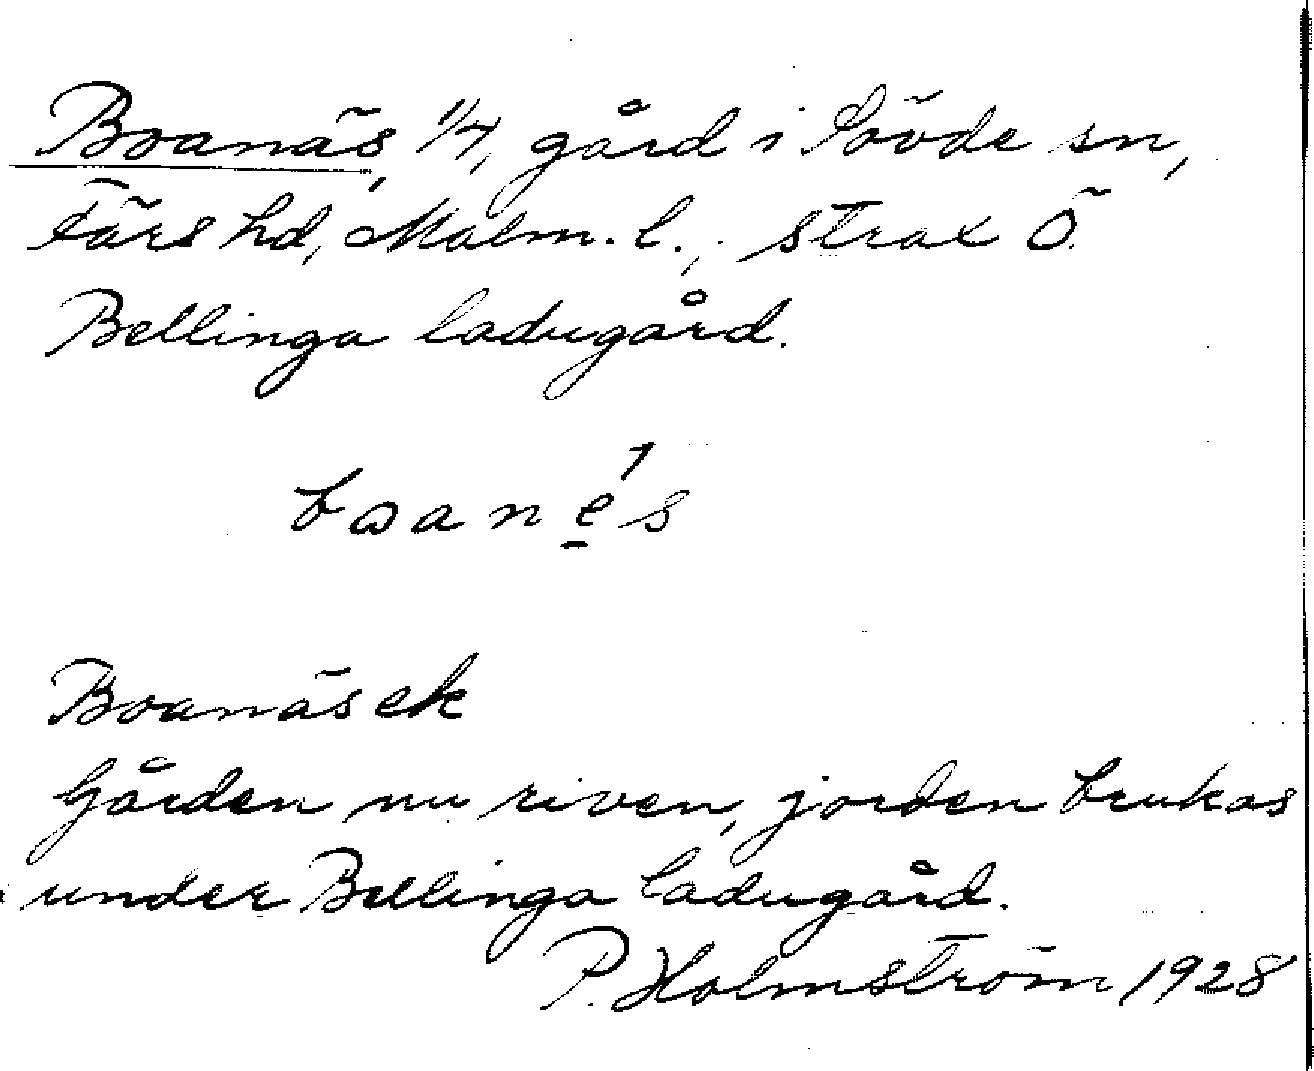 Boanäs, 1/4, gård i Sövde sn,
Färs hd, Malm. l., strax Ö.
Bellinga ladugård.
boanés
Boanäs ek
Gården nu riven, jorden brukas
under Bellinga ladugård.
P. Holmström 1928